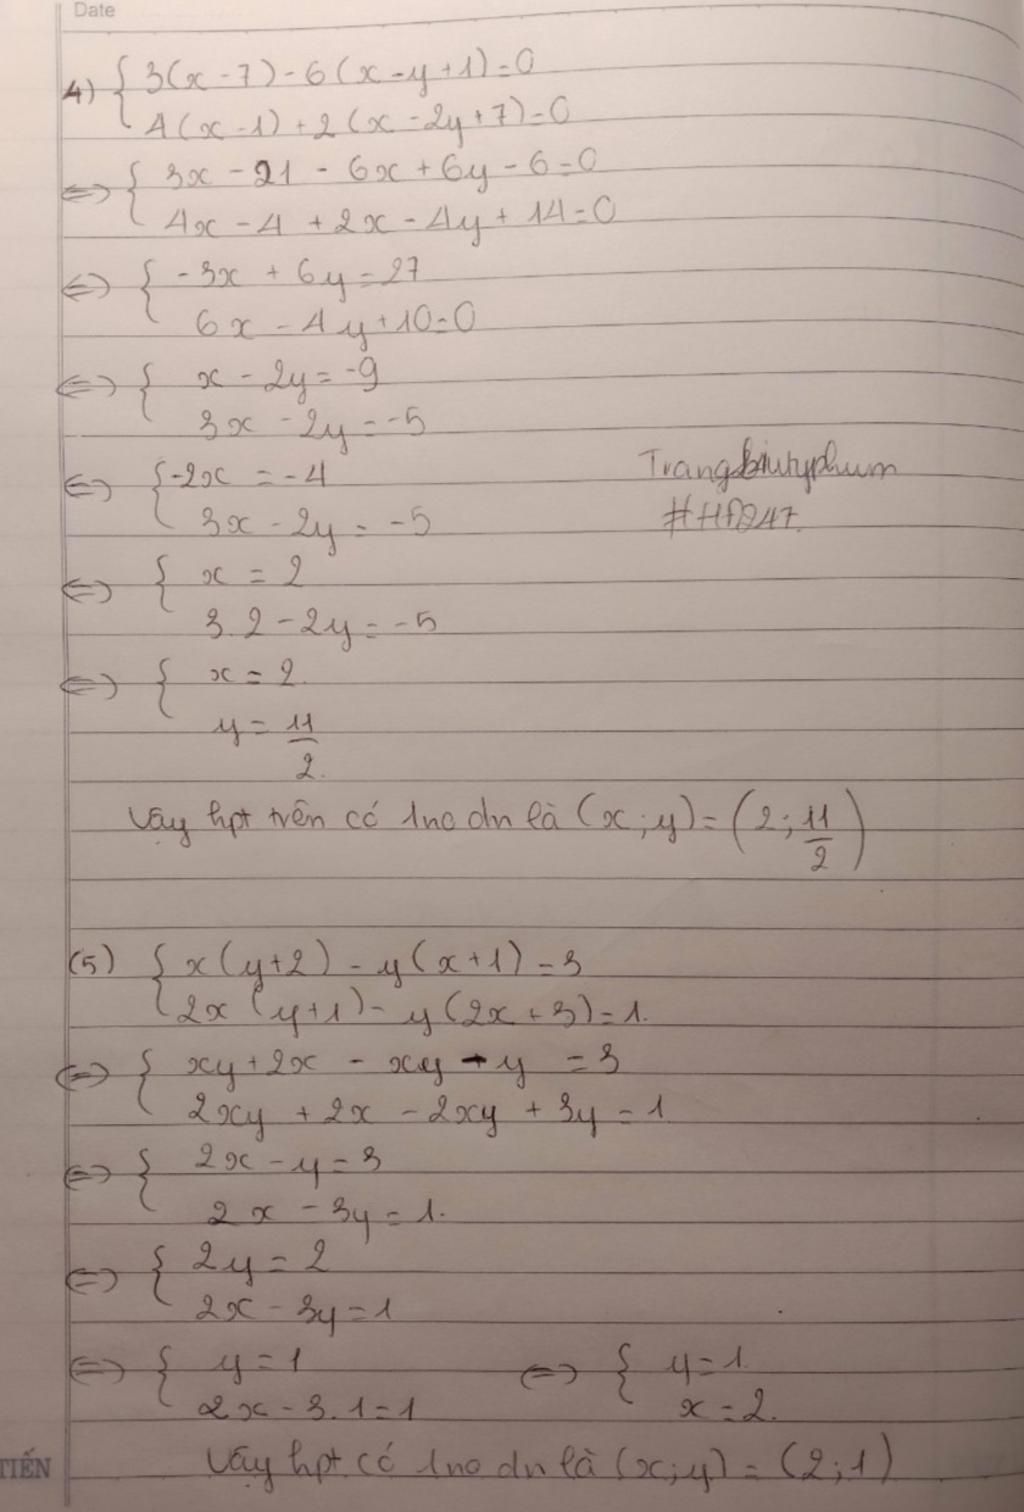 Date
4) { 3(x - 7) - 6(x - y + 1) = 0
4(x - 1) + 2(x - 2y + 7) = 0
<=> { 3x - 21 - 6x + 6y - 6 = 0
4x - 4 + 2x - 4y + 14 = 0
<=> { -3x + 6y = 27
6x - 4y + 10 = 0
<=> { x - 2y = -9
3x - 2y = -5
<=> { -2x = -4
3x - 2y = -5
#HĐ247.
<=> { x = 2
3.2 - 2y = -5
<=> { x = 2.
y = 11/2.
Vậy hpt trên có 1 no dn là (x; y) = (2; 11/2)
(5) { x(y+2) - y(x+1) = 3
2x(y+1) - y(2x+3) = 1.
<=> { xy + 2x - xy - y = 3
2xy + 2x - 2xy + 3y = 1
<=> { 2x - y = 3
2x - 3y = 1.
<=> { 2y = 2
2x - 3y = 1
<=> { y = 1 <=> { y = 1
2x - 3.1 = 1 x = 2.
TIẾN
Vậy hpt có 1 no dn là (x; y) = (2; 1)